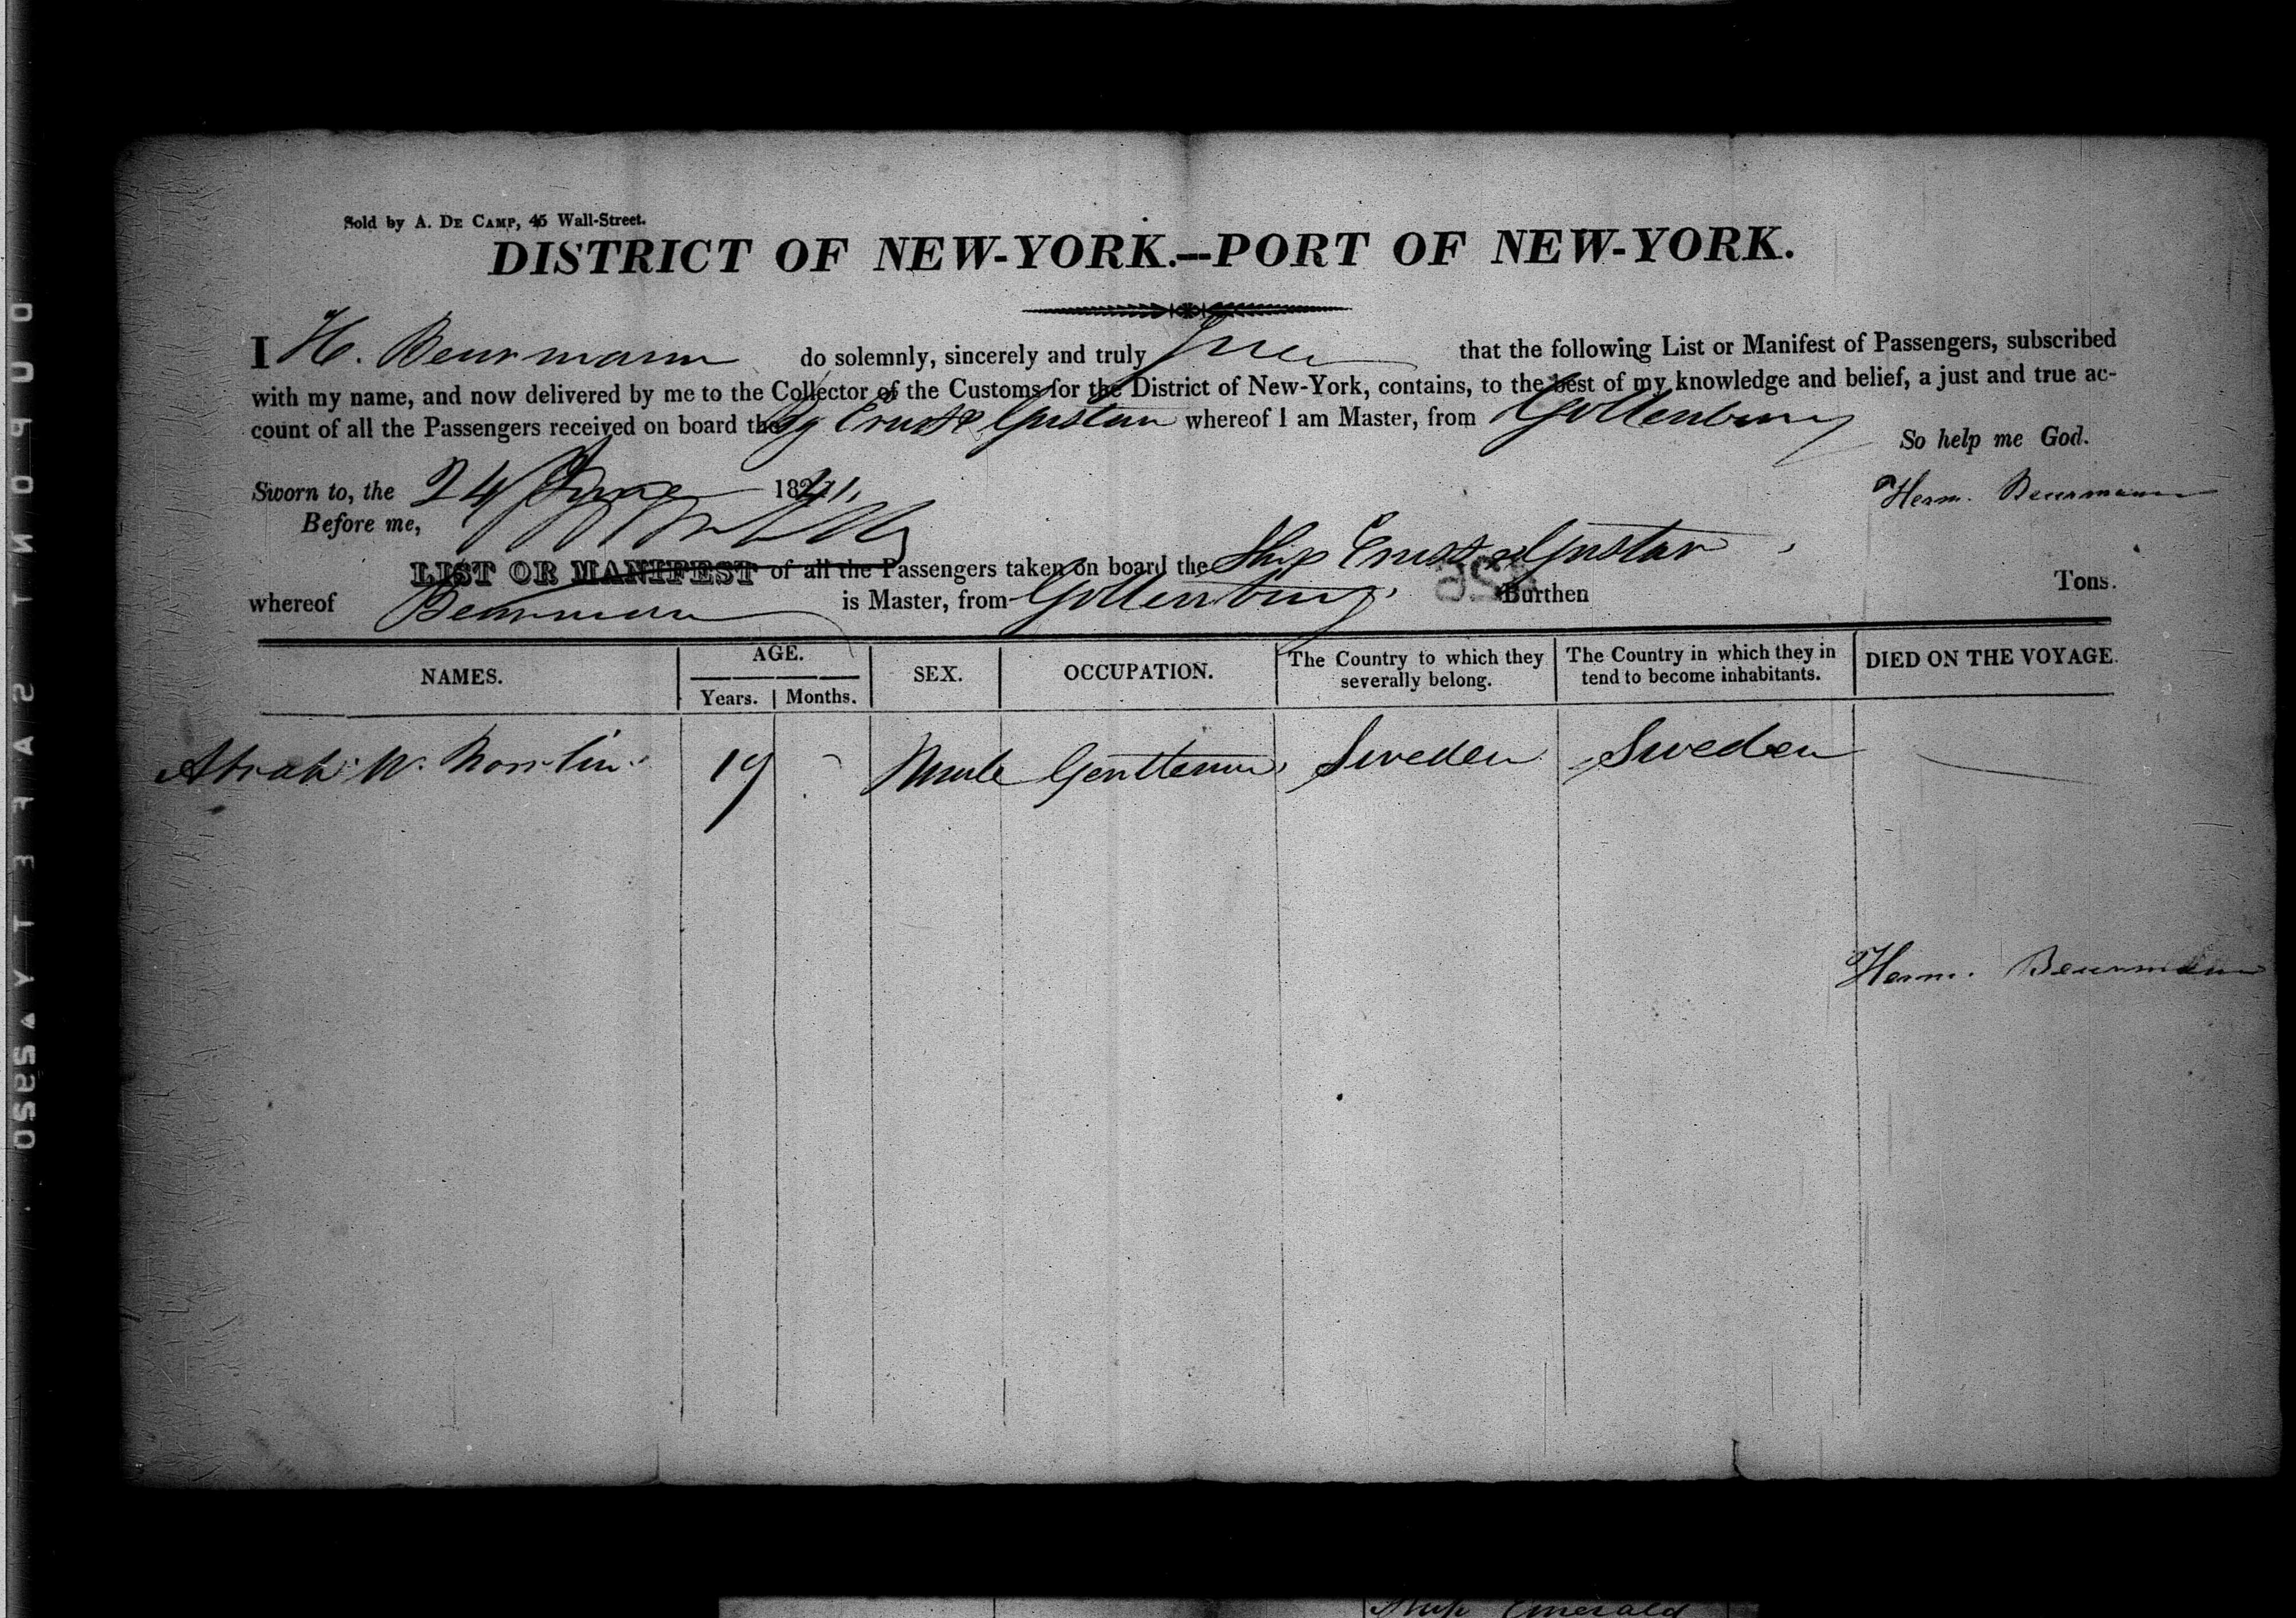 Sold by A. DE CAMP, 45 Wall-Street.
DISTRICT OF NEW-YORK.—PORT OF NEW-YORK.
I H. Beurmann do solemnly, sincerely and truly that the following List or Manifest of Passengers, subscribed
with my name, and now delivered by me to the Collector of the Customs for the District of New-York, contains, to the best of my knowledge and belief, a just and true ac-
count of all the Passengers received on board the Ernst & Gustav whereof I am Master, from Gottenburg
So help me God.
Sworn to, the 24 June 182
Herm. Beurmann
Before me,
LIST OR MANIFEST of all the Passengers taken on board the Ship Ernst & Gustav
whereof Beurmann is Master, from Gottenburg, Burthen Tons.
NAMES. AGE. SEX. OCCUPATION. The Country to which they severally belong. The Country in which they in tend to become inhabitants. DIED ON THE VOYAGE.
Years. Months.
Abrah: W. 19 Male Gentleman Sweden Sweden
Herm. Beurmann
Ship Emerald